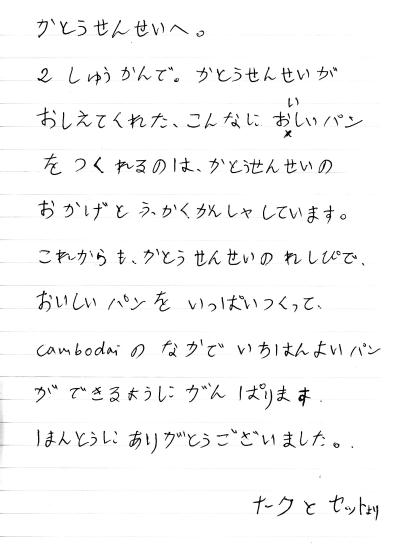 かとうせんせいへ。
2 しゅうかんで。かとうせんせいが
おしえてくれた、こんなに おいしいパン
を つくれるのは、かとうせんせいの
おかげと ふかくかんしゃしています。
これからも、かとうせんせいの れしぴで、
おいしい パンを いっぱいつくって、
cambodai の なかで いちはんよいパン
が できるように がんばります.
ほんとうに ありがとうございました。.
ナークと セットより